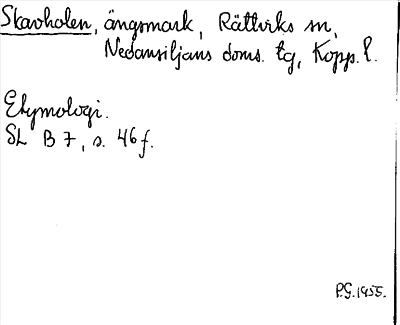 Skavholen, ängsmark, Rättviks sn,
Nedansiljans doms. tg, Kopp. l.
Etymologi.
SL B 7, s. 46 f.
P.G. 1955.